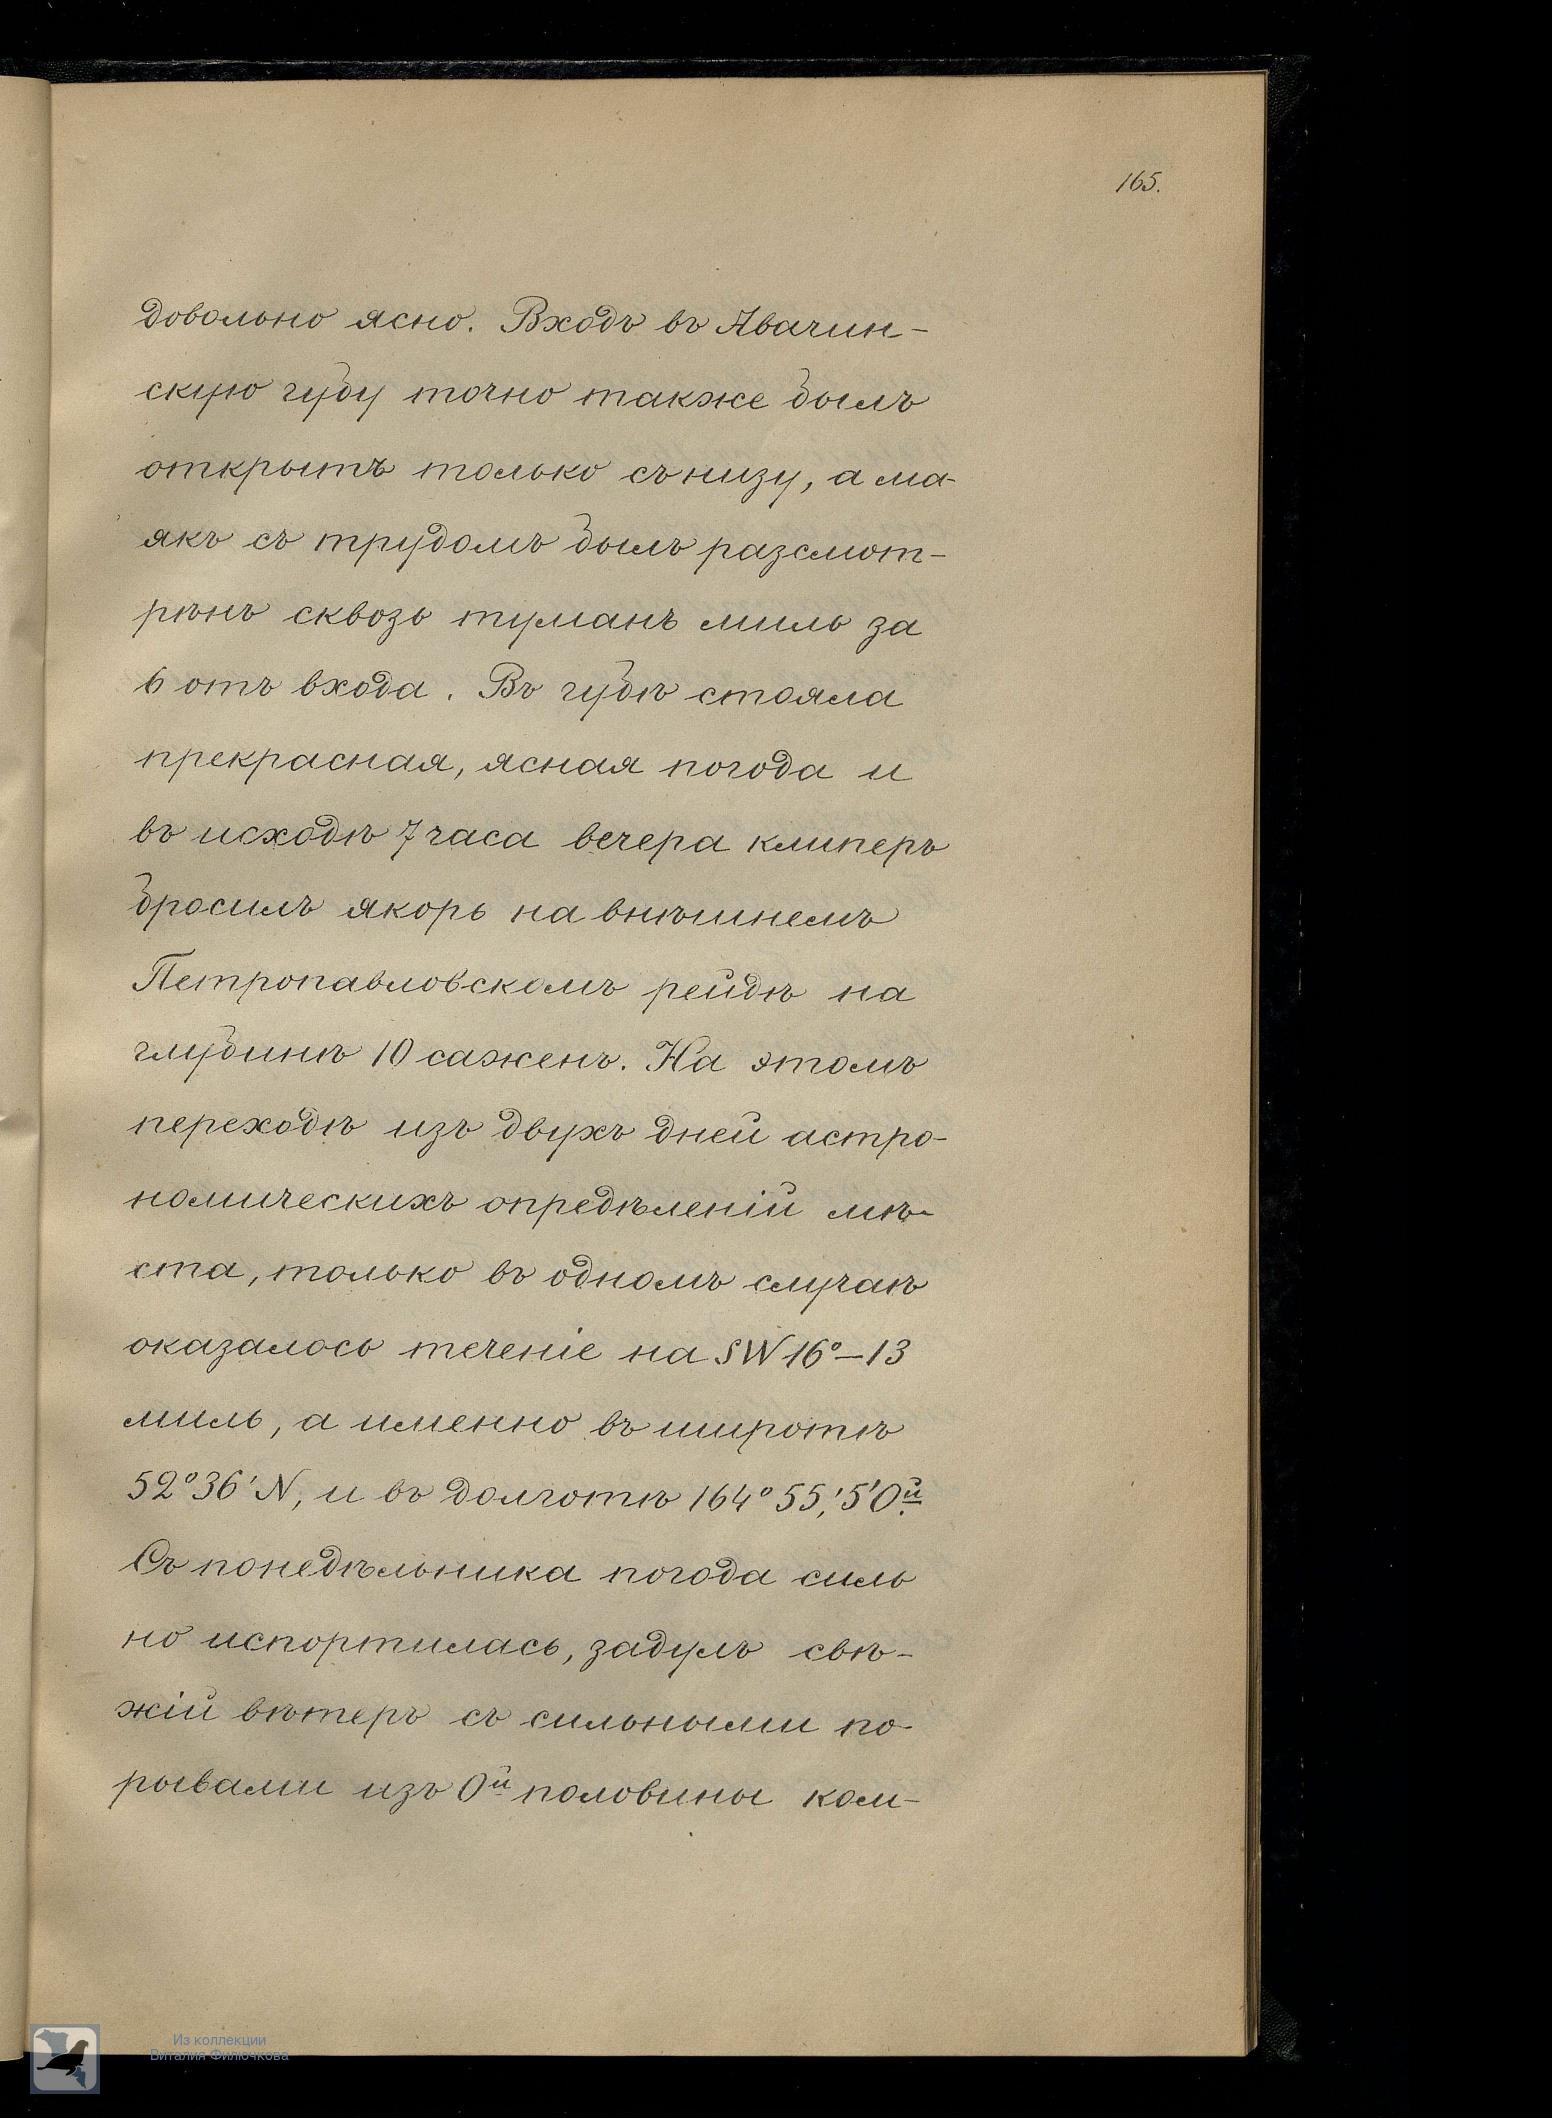 165.
довольно ясно. Входъ въ Авачин-
скую губу точно также былъ
открытъ только сънизу, а ма-
якъ съ трудомъ былъ разсмот-
рѣнъ сквозь туманъ миль за
6 отъ входа. Въ губѣ стояла
прекрасная, ясная погода и
въ исходѣ 7 часа вечера клиперъ
бросилъ якорь на внѣшнемъ
Петропавловскомъ рейдѣ на
глубинѣ 10 саженъ. На этомъ
переходѣ изъ двухъ дней астро-
номическихъ опредѣленій мѣ-
ста, только въ одномъ случаѣ
оказалось теченіе на SW 16°–13
миль, а именно въ широтѣ
52°36' N, и въ долготѣ 164°55,'5' Oй.
Съ понедѣльника погода силь
но испортилась, задулъ свѣ-
жій вѣтеръ съ сильными по-
рывами изъ Oй половины ком-
Из коллекции
Виталия Филючкова